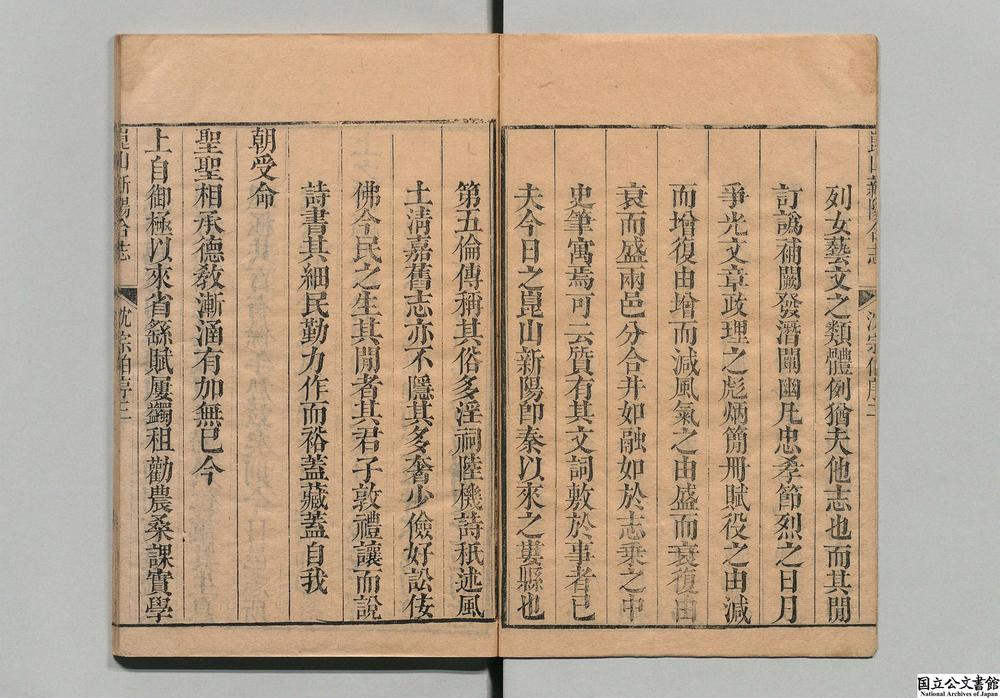 列女藝文之類體例猶夫他志也而其閒
訂譌補闕發潛闡幽凡忠孝節烈之日月
爭光文章政理之彪炳簡冊賦役之由減
而增復由增而減風氣之由盛而衰復由
衰而盛兩邑分合井如融如於志乘之中
史筆寓焉可云質有其文詞敷於事者已
夫今日之崑山新陽卽秦以來之婁縣也
第五倫傳稱其俗多淫祠陸機詩秖述風
土淸嘉舊志亦不隱其多奢少儉好訟佞
佛今民之生其閒者其君子敦禮讓而說
詩書其細民勤力作而裕蓋藏蓋自我
朝受命
聖聖相承德敎漸涵有加無已今
上自御極以來省繇賦屢蠲租勸農桑課實學
崑山新陽合志
沈宗伯序三
国立公文書館
National Archives of Japan